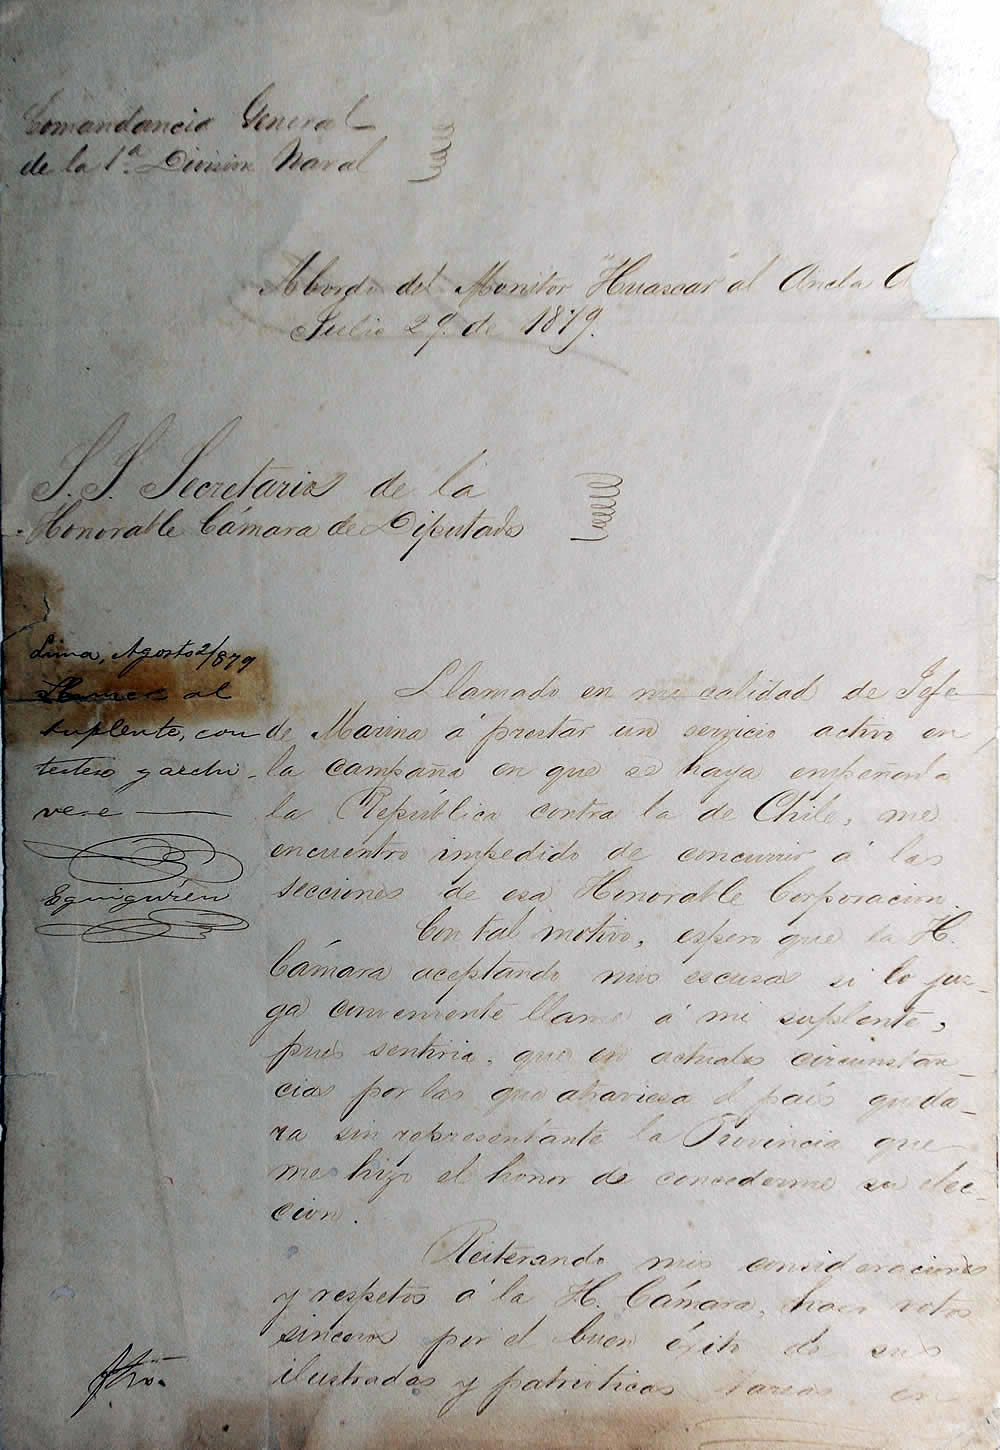 Comandancia General
de la 1ª. Division Naval
Abordo del Monitor "Huascar" al Ancla A
Julio 29. de 1879.
S.S. Secretarios de la
Honorable Cámara de Diputados
Lima, Agosto 2/879
Llamese al
suplente, con
testese y archi
vese
Eguiguren
Llamado en mi calidad de Jefe
de Marina á prestar un servicio activo en
la campaña en que se haya empeñada
la República contra la de Chile, me
encuentro impedido de concurrir á las
secciones de esa Honorable Corporacion.
Con tal motivo, espero que la H.
Cámara aceptando mis escusas si lo juz-
ga conveniente llame á mi suplente,
pues sentiria, que en actuales circunstan-
cias por las que atraviesa el país queda-
ra sin representante la Provincia que
me hizo el honor de concederme su elec-
cion.
Reiterando mis consideraciones
y respetos á la H. Cámara, hace votos
sinceros por el buen éxito de sus
ilustradas y patrióticas tareas en